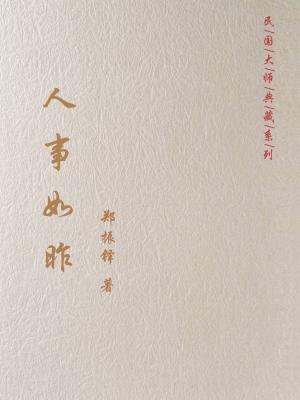 民国大师典藏系列
人事如昨
郑振铎 著